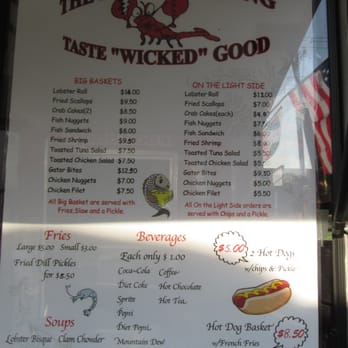 THE
NG
TASTE "WICKED" GOOD
BIG BASKETS
Lobster Roll
Fried Scallops $9.50
Crab Cakes(2) $8.50
Fish Nuggets $9.00
Fish Sandwich $6.00
Fried Shrimp $9.50
Toasted Tuna Salad $7.50
Toasted Chicken Salad $7.50
Gator Bites $12.50
Chicken Nuggets $7.00
Chicken Filet $7.50
All Big Basket are served with
Fries, Slaw and a Pickle.
ON THE LIGHT SIDE
Lobster Roll
Fried Scallops $7.00
Crab Cakes(each)
Fish Nuggets
Fish Sandwich
Fried Shrimp
Toasted Tuna Salad
Toasted Chicken Salad
Gator Bites
Chicken Nuggets $5.00
Chicken Filet $5.50
All On the Light Side orders are
served with Chips and a Pickle.
Fries
Large $5.00 Small $3.00
Fried Dill Pickles
for
Soups
Lobster Bisque Clam Chowder
Beverages
Each only $ 1.00
Coca-Cola Coffee
Diet Coke Hot Chocolate
Sprite Hot Tea
Pepsi
Diet Pepsi
Mountain Dew
$5.00
2 Hot Dogs
w/chips & Pickle
Hot Dog Basket
w/French Fries
$8.50